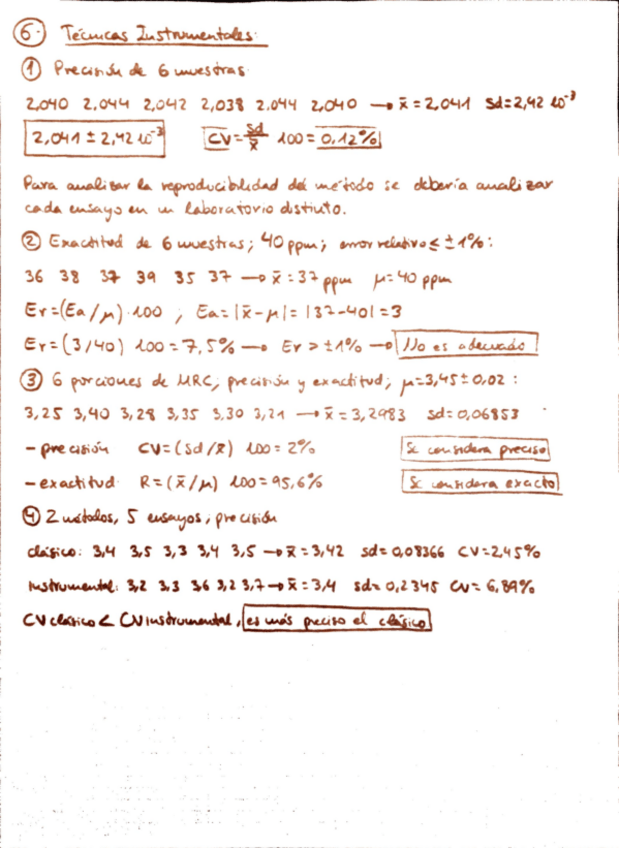 ⑥ Técnicas Instrumentales:
① Precisión de 6 muestras
2,040 2,044 2,042 2,038 2.044 2,040 → x̄ = 2,041 sd = 2,42 10⁻³
2,041 ± 2,42 10⁻³ CV = sd/x̄ 100 = 0,12%
Para analizar la reproducibilidad del método se debería analizar
cada ensayo en un laboratorio distinto.
② Exactitud de 6 muestras; 40 ppm; error relativo ≤ ±1%:
36 38 37 39 35 37 → x̄ = 37 ppm μ = 40 ppm
Er = (Ea/μ) · 100 ; Ea = |x̄ - μ| = |37 - 40| = 3
Er = (3/40) 100 = 7,5% → Er > ±1% → No es adecuado
③ 6 porciones de MRC; precisión y exactitud; μ = 3,45 ± 0,02 :
3,25 3,40 3,28 3,35 3,30 3,21 → x̄ = 3,2983 sd = 0,06853
- precisión CV = (sd/x̄) 100 = 2% Se considera preciso
- exactitud R = (x̄/μ) 100 = 95,6% Se considera exacto
④ 2 métodos, 5 ensayos, precisión
clásico: 3,4 3,5 3,3 3,4 3,5 → x̄ = 3,42 sd = 0,08366 CV = 2,45%
Instrumental: 3,2 3,3 3,6 3,2 3,7 → x̄ = 3,4 sd = 0,2345 CV = 6,89%
CV clásico < CV instrumental, es más preciso el clásico